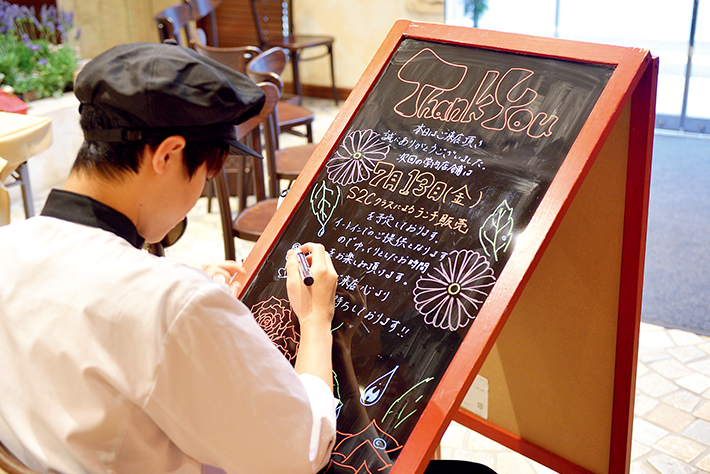 Thank You
本日はご来店頂き
誠にありがとうございました。
次回の営内店舗は
7月13日(金)
S2Cクラスによるランチ販売
を予定しております。
イートインでのご提供となります
のでゆっくりとしたお時間
をお楽しみ頂けます。
ご来店心より
お待ちしております!!